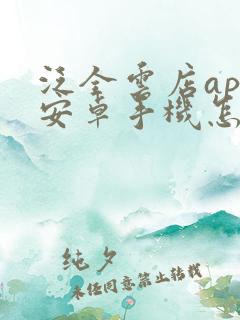 泛全書店ap
安卓手機怎
純夕
未经同意禁止转载